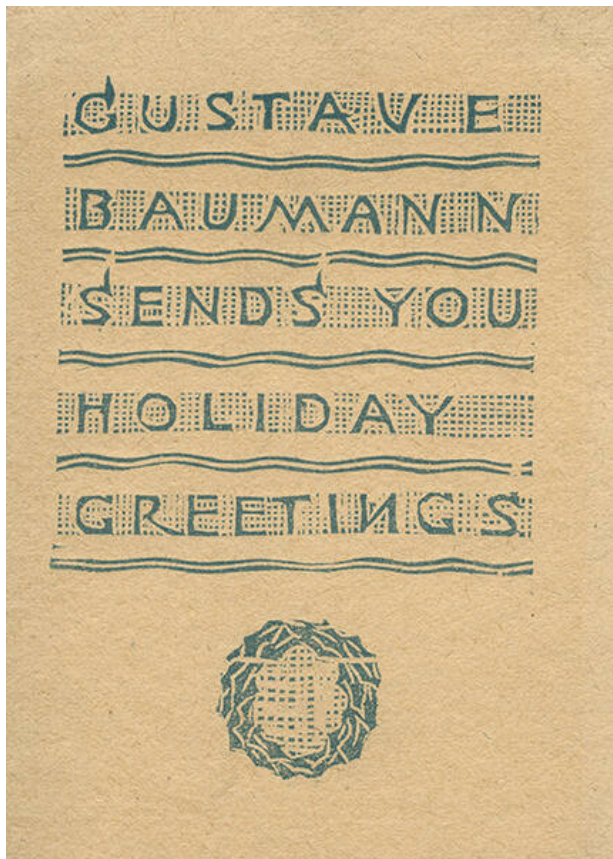 GUSTAVE
BAUMANN
SENDS YOU
HOLIDAY
GREETINGS